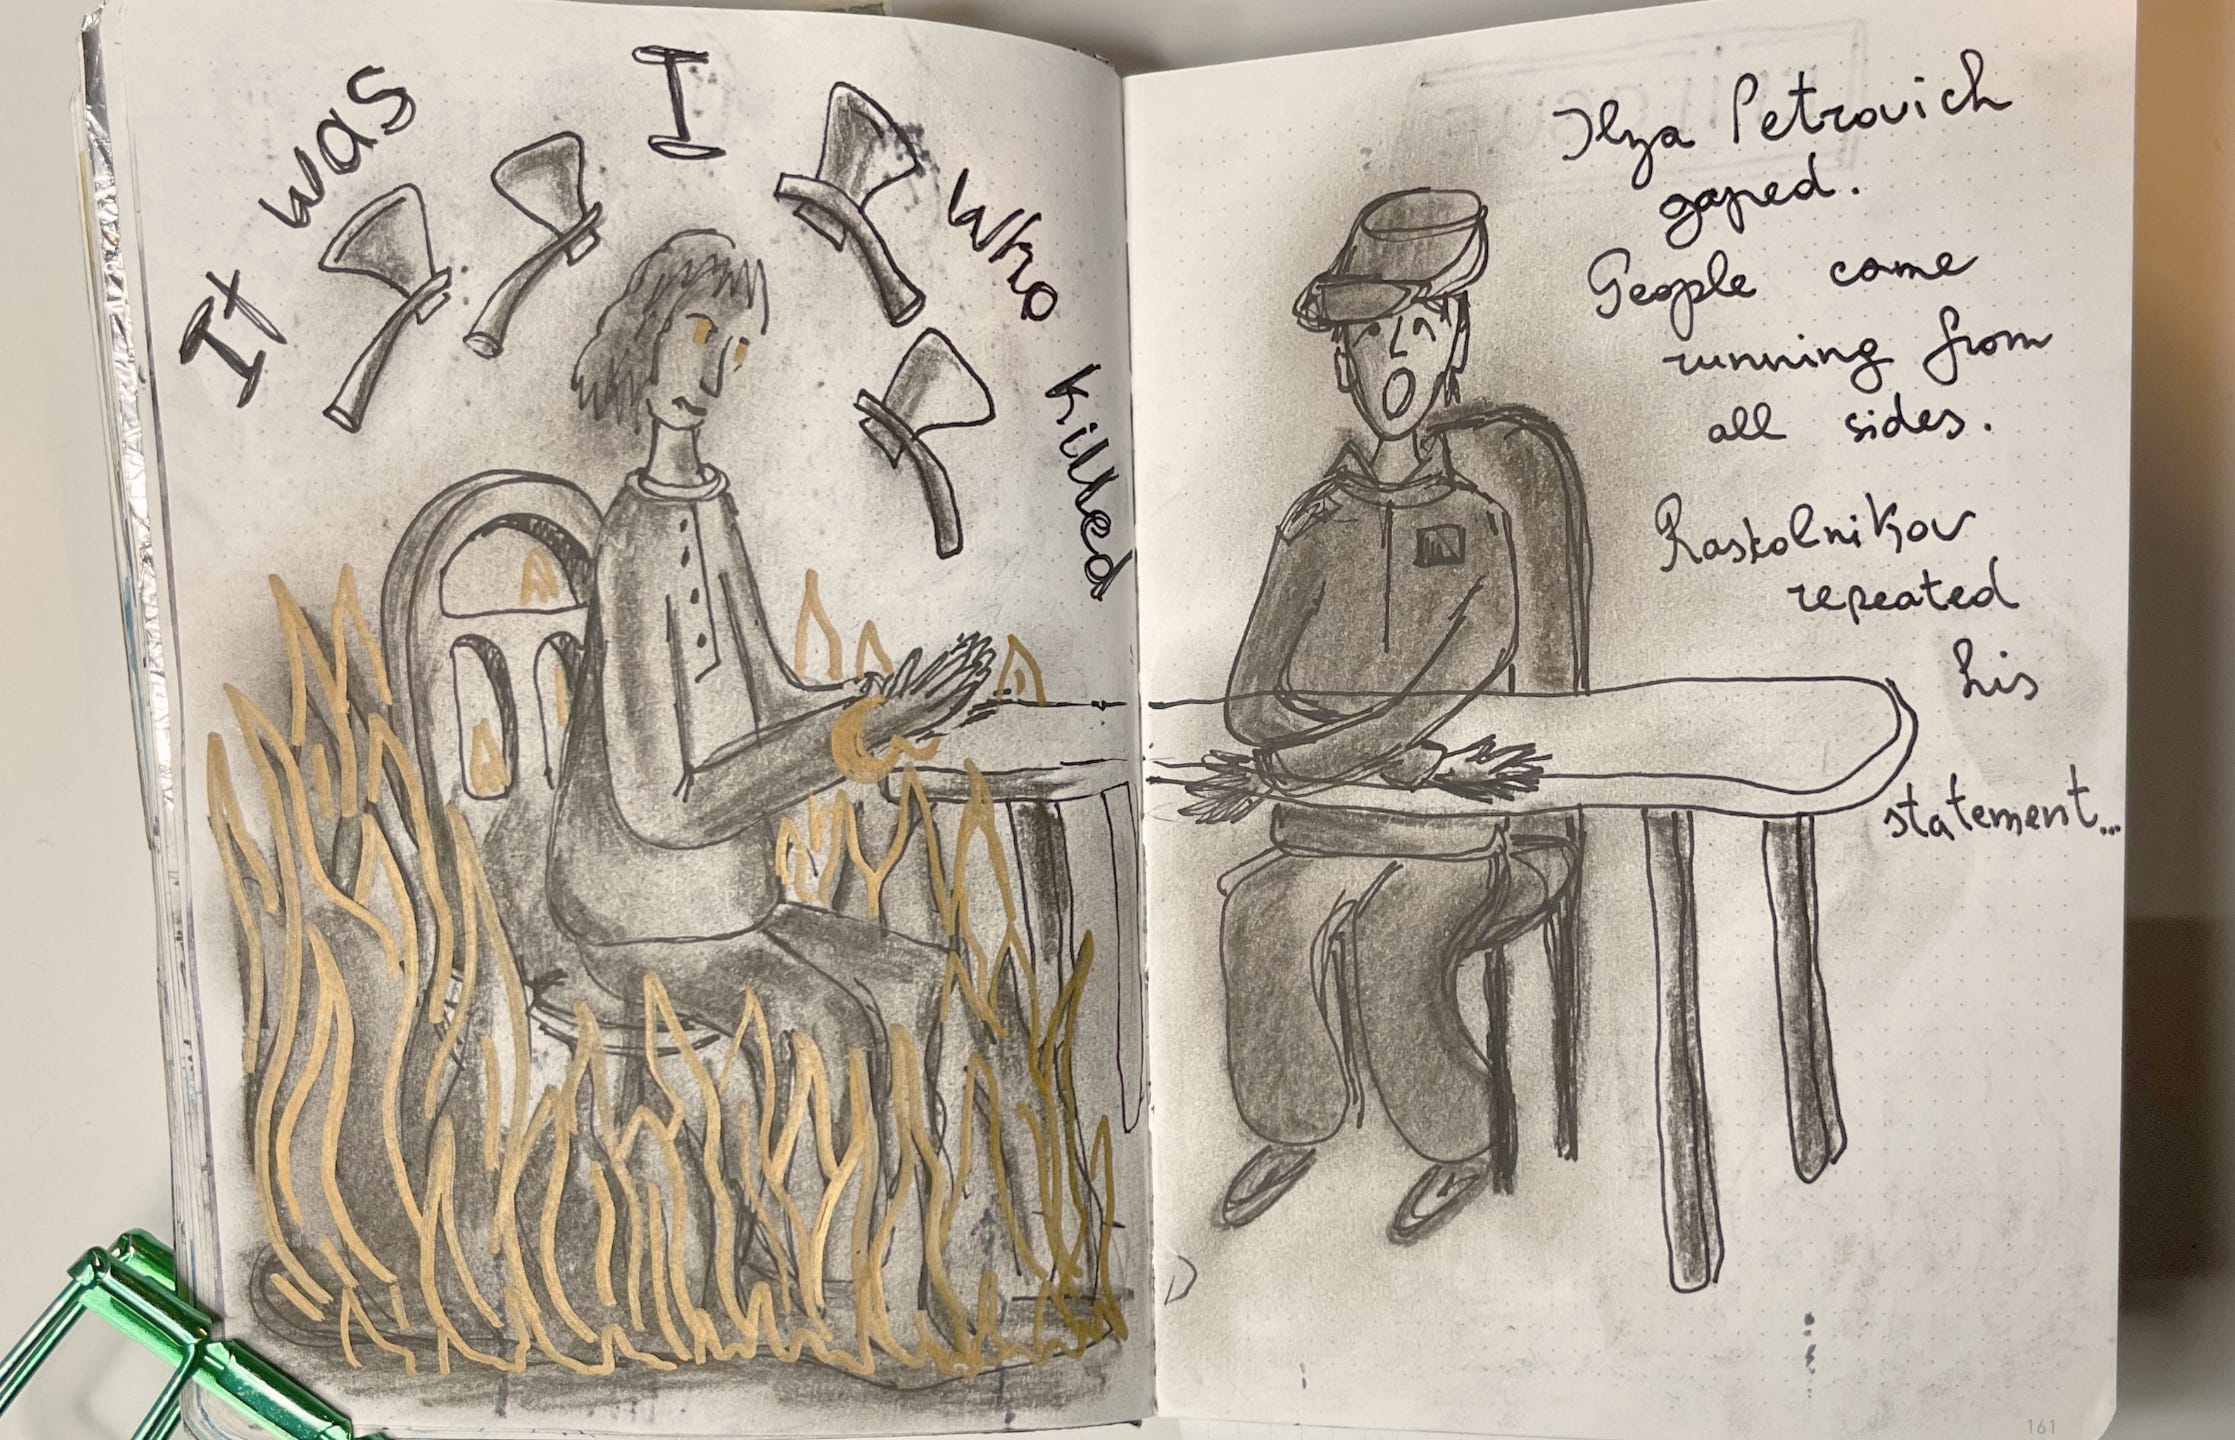 It was I who killed
Ilya Petrovich
gaped.
People came
running from
all sides.
Raskolnikov
repeated
his
statement...
161